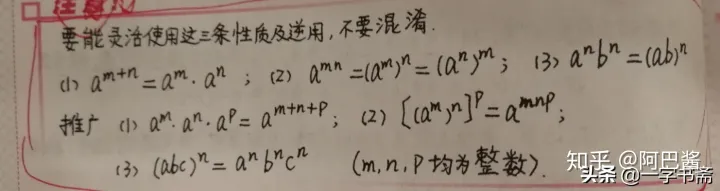 注意
要能灵活使用这三条性质及逆用,不要混淆.
(1) aᵐ⁺ⁿ=aᵐ·aⁿ ; (2) aᵐⁿ=(aᵐ)ⁿ=(aⁿ)ᵐ ; (3) aⁿbⁿ=(ab)ⁿ
推广 (1) aᵐ·aⁿ·aᵖ=aᵐ⁺ⁿ⁺ᵖ ; (2) [(aᵐ)ⁿ]ᵖ=aᵐⁿᵖ ;
(3) (abc)ⁿ=aⁿbⁿcⁿ (m,n,p均为整数).
知乎 @阿巴酱
头条 @一字书斋